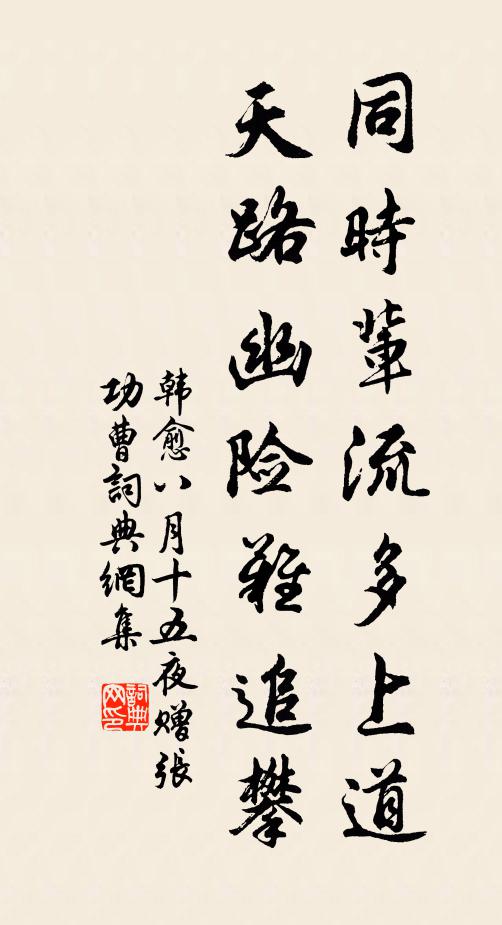 同時輩流多上道
天路幽险難追攀
韩愈八月十五夜赠張
功曹詞典網集
詞典网印